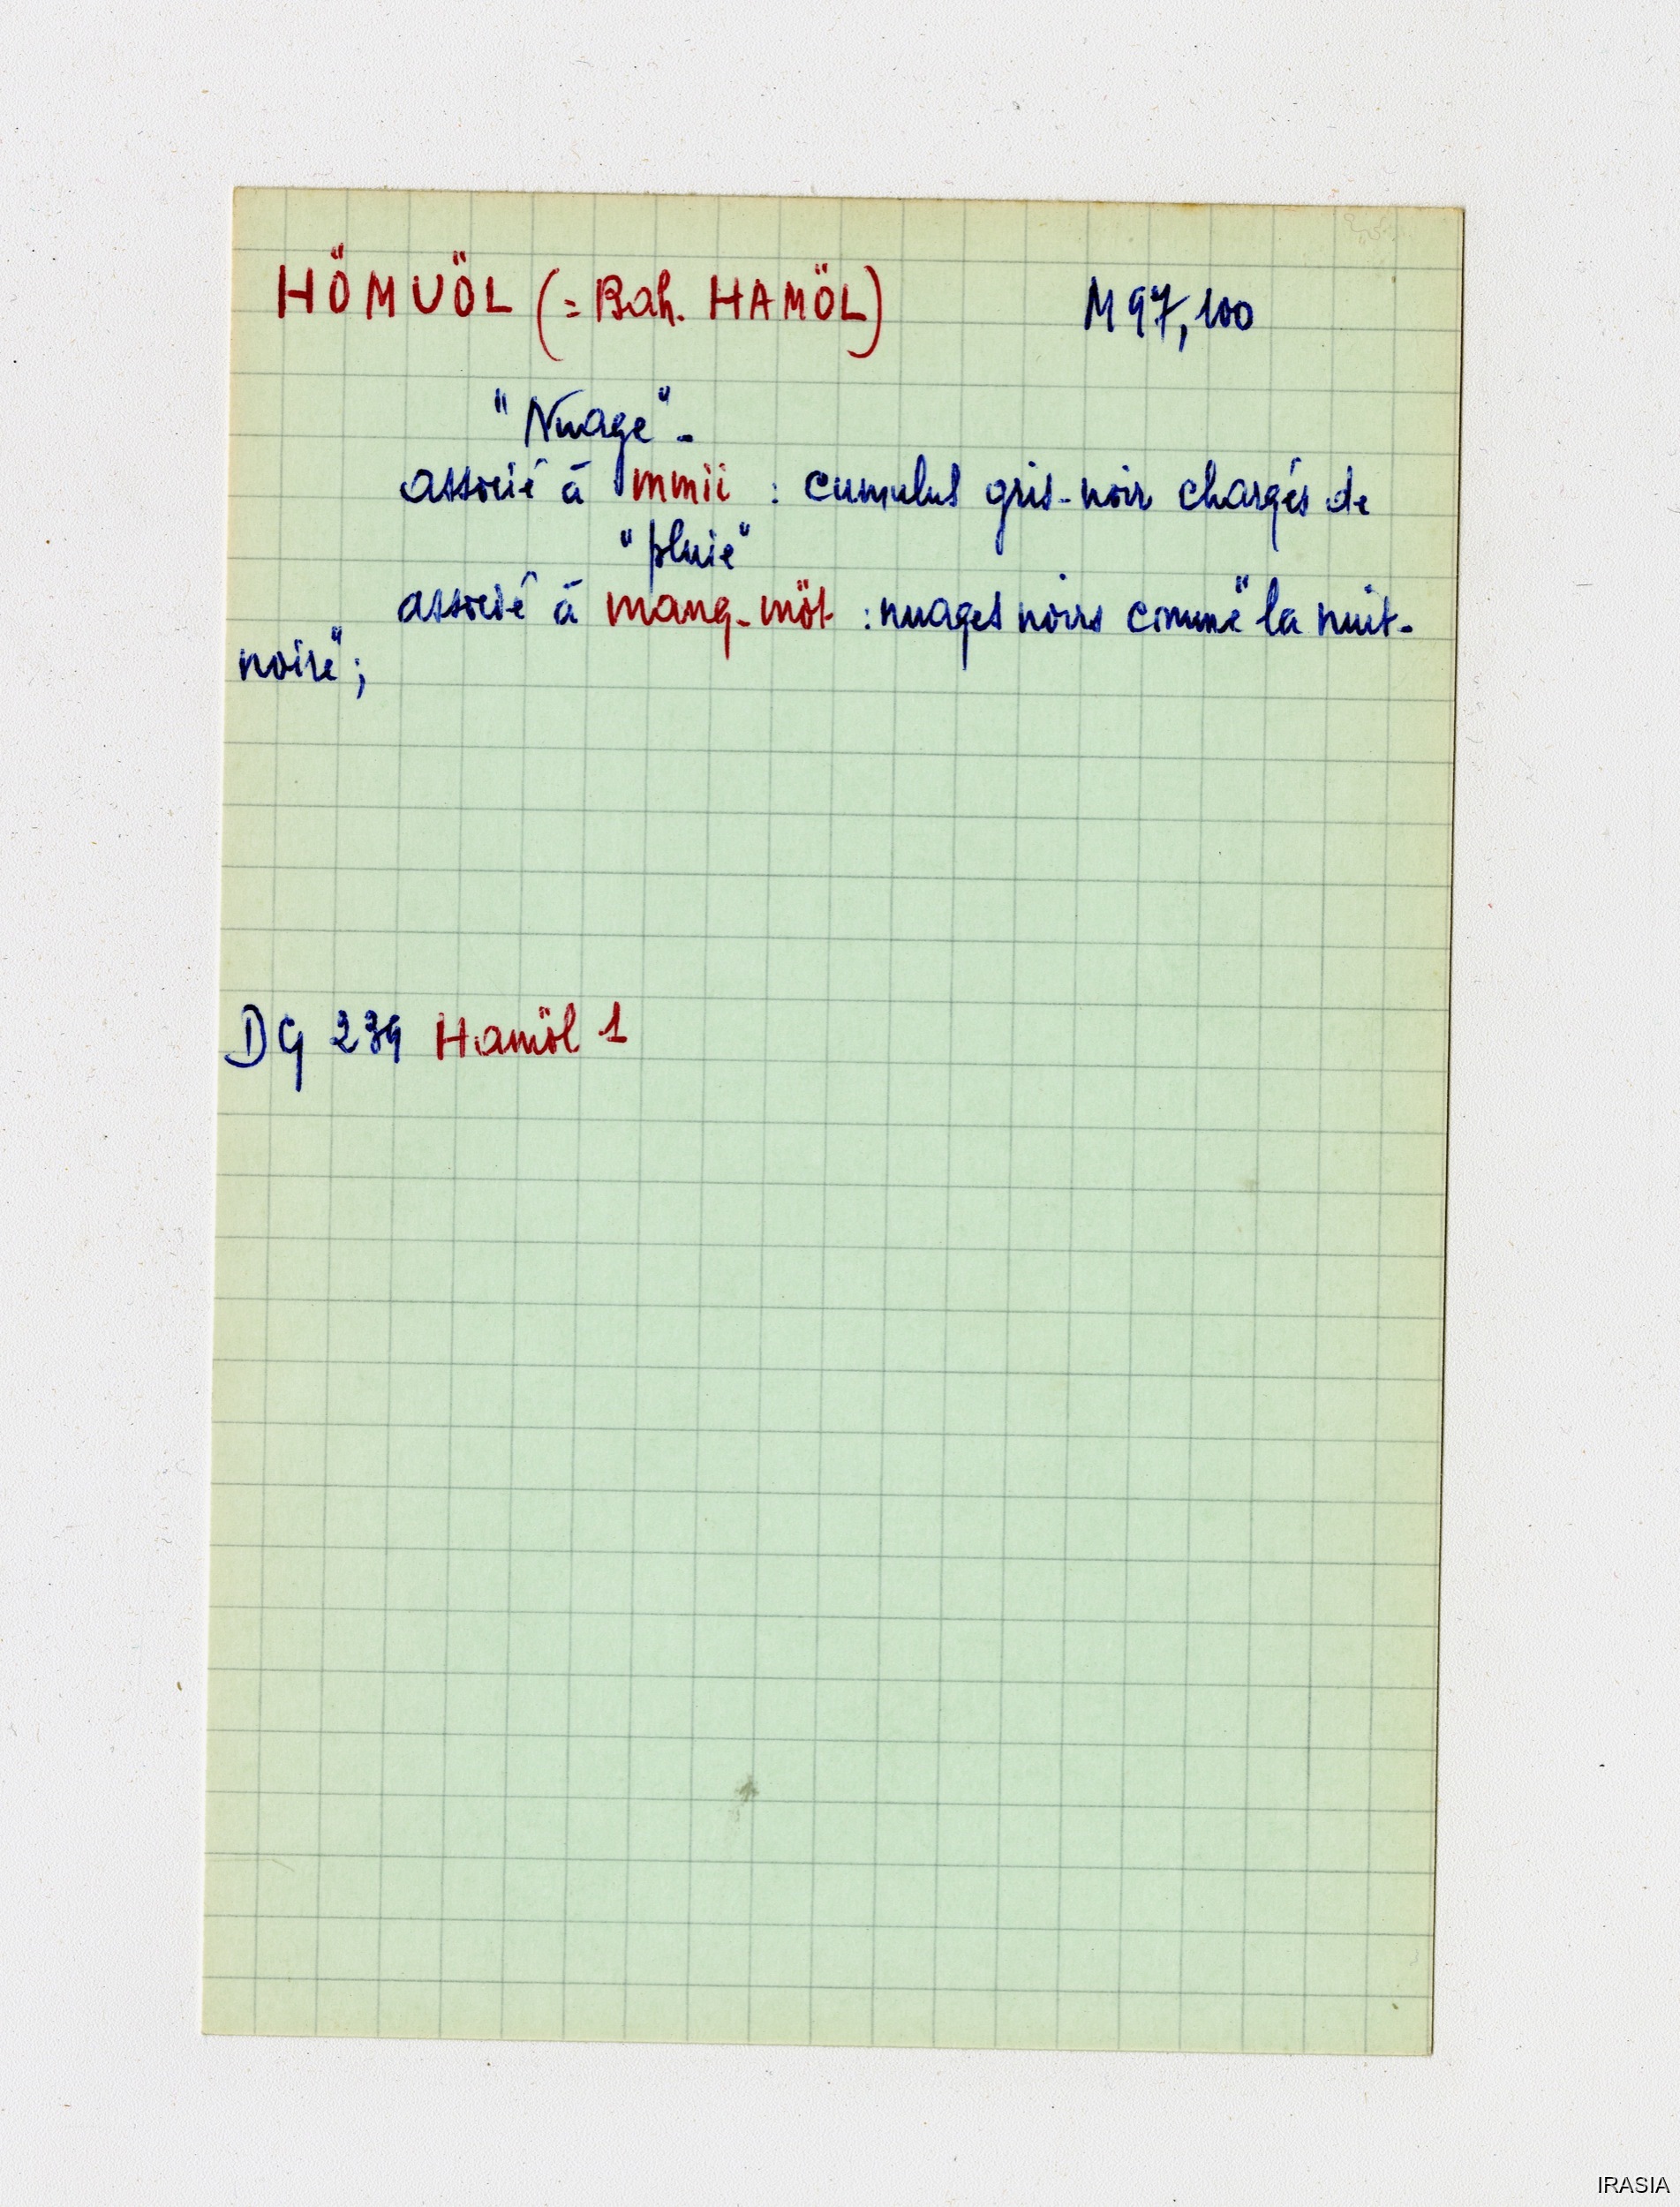 HÖMUÖL (= Bah. HAMÖL) M 97, 100
"Nuage" -
associé à mmii : cumulus gris-noir chargés de
"pluie"
associé à mang-möt : nuages noirs comme "la nuit-
noire" ;
DG 239 Hamöl 1
IRASIA